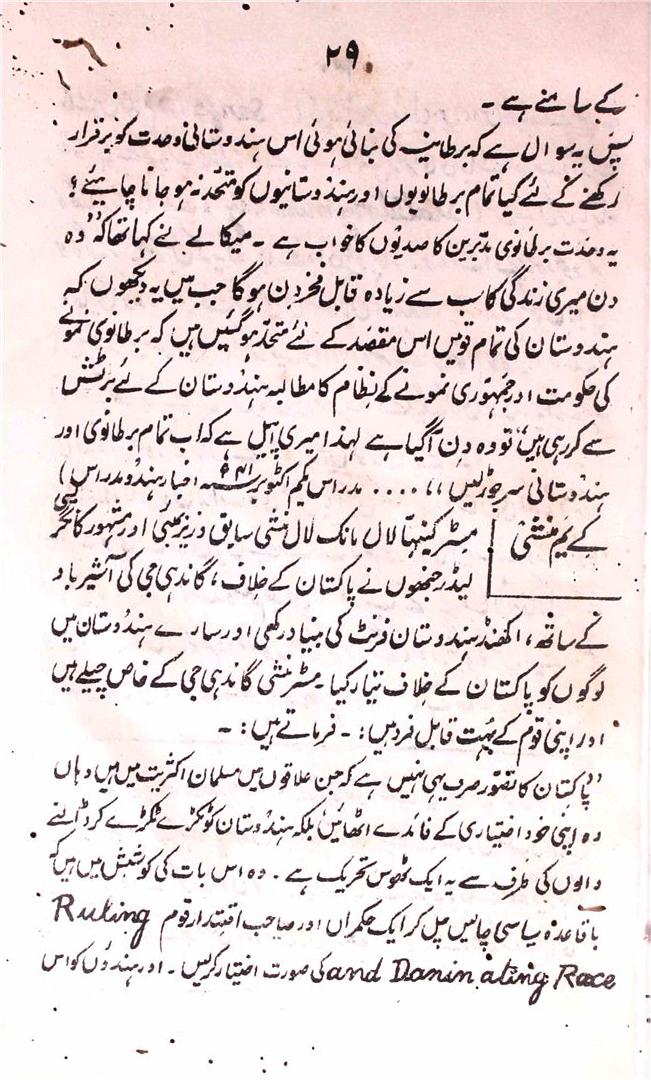 ۲۹
کے سامنے ہے ۔
پس یہ سوال ہے کہ برطانیہ کی بنائی ہوئی اس ہندوستانی وحدت کو برقرار
رکھنے کے لئے کیا تمام برطانویوں اور ہندوستانیوں کو متحد نہ ہو جانا چاہیئے ؟
یہ وحدت برطانوی مدبرین کا صدیوں کا خواب ہے ۔ میکالے نے کہا تھا کہ "وہ
دن میری زندگی کا سب سے زیادہ قابل فخر دن ہوگا جب میں یہ دیکھوں کہ
ہندوستان کی تمام قومیں اس مقصد کے لئے متحد ہوگئیں ہیں کہ برطانوی نمونے
کی حکومت اور جمہوری نمونے کے نظام کا مطالبہ ہندوستان کے لئے برٹش
سے کر رہی ہیں" تو وہ دن آگیا ہے لہذا میری اپیل ہے کہ اب تمام برطانوی اور
ہندوستانی سر جوڑ لیں ،، .... مدراس یکم اکتوبر ۴۱ء اخبار ہندو مدراس)
کے یم منشی مسٹر کنہیا لال مانک لال منشی سابق وزیر بمبئی اور مشہور کانگریسی
لیڈر جنھوں نے پاکستان کے خلاف ، گاندھی جی کی آشیرباد
کے ساتھ ، اکھنڈ ہندوستان فرنٹ کی بنیاد رکھی اور سارے ہندوستان میں
لوگوں کو پاکستان کے خلاف تیار کیا ۔ مسٹر منشی گاندھی جی کے خاص چیلے ہیں
اور اپنی قوم کے بہت قابل فرد ہیں : ۔ فرماتے ہیں : ۔
"پاکستان کا تصور صرف یہی نہیں ہے کہ جن علاقوں میں مسلمان اکثریت میں ہیں وہاں
وہ اپنی خود اختیاری کے فائدے اٹھائیں بلکہ ہندوستان کو ٹکڑے ٹکڑے کر ڈالنے
والوں کی طرف سے یہ ایک ٹھوس تحریک ہے ۔ وہ اس بات کی کوشش میں ہیں کہ
باقاعدہ سیاسی چالیں چل کر ایک حکمراں اور صاحب اقتدار قوم Ruling
and Daninating Race کی صورت اختیار کرلیں ۔ اور ہندوں کو اس